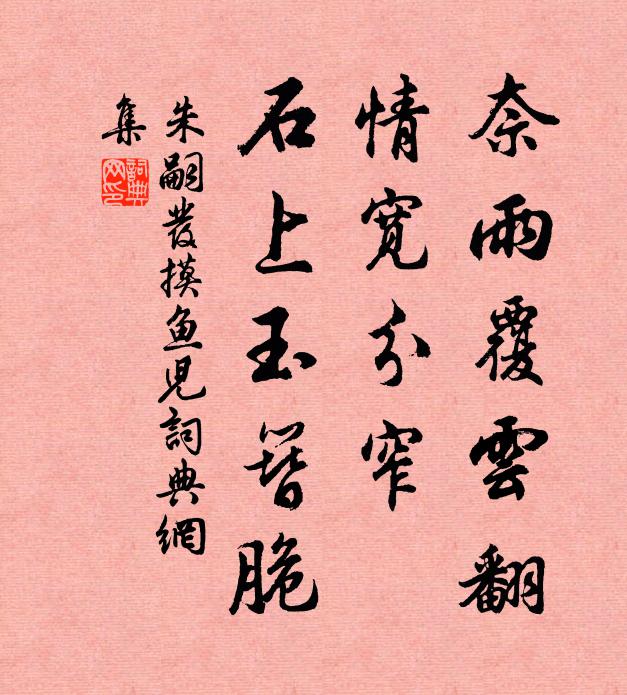 奈雨覆雲翻
情寬分窄
石上玉簪脆
朱嗣發摸鱼児詞典網
集
詞典
网印